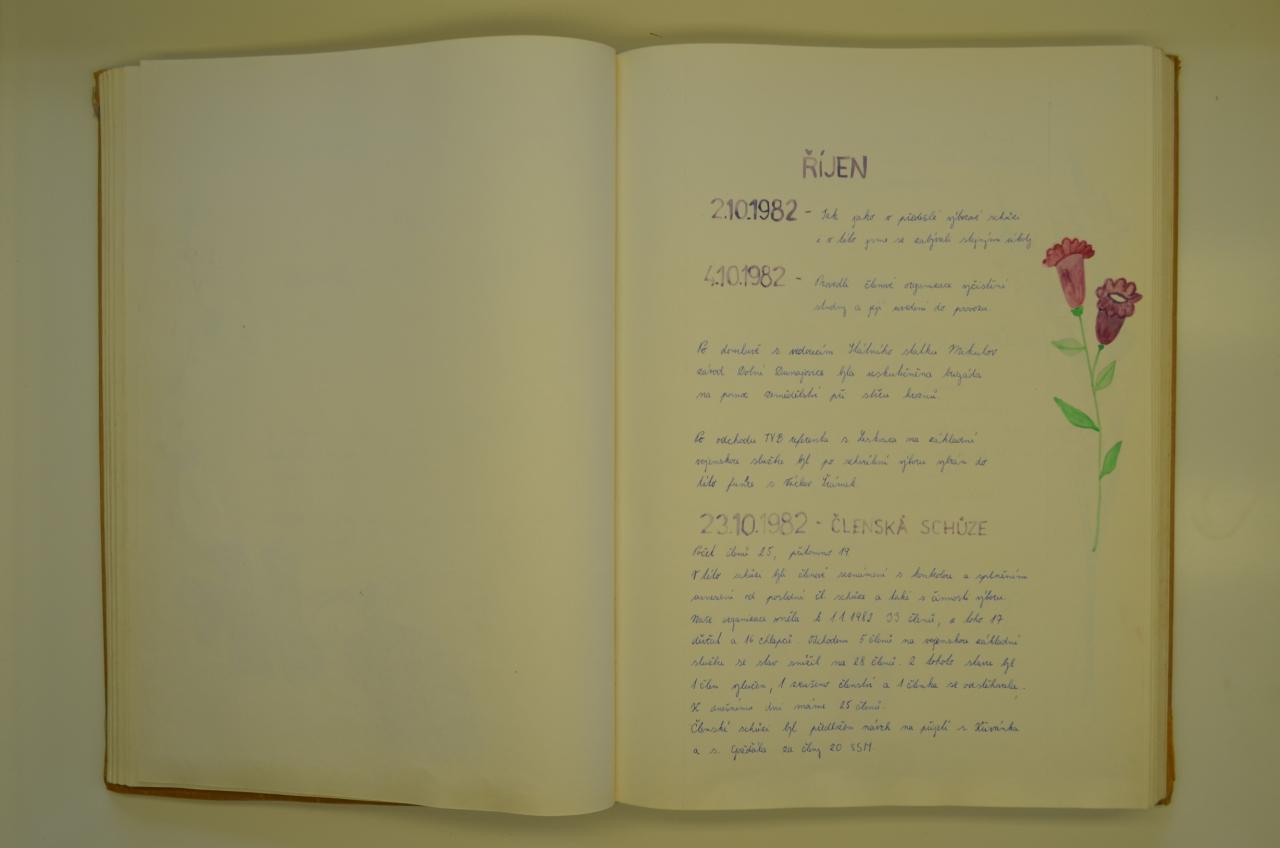 ŘÍJEN
2.10.1982 - Tak jako v předešlé výborové schůzi
i v této jsme se zabývali stejnými úkoly
4.10.1982 - Provedli členové organizace vyčistění
studny a její uvedení do provozu.
Po domluvě s vedoucím Státního statku Mikulov
závod Dolní Dunajovice byla uskutečněna brigáda
na pomoc zemědělství při sběru hroznů.
Po odchodu TVB referenta s. na základní
vojenskou službu byl po schválení výboru vybrán do
této funkce s. Václav Šrámek.
23.10.1982 - ČLENSKÁ SCHŮZE
Počet členů 25, přítomno 19
V této schůzi byli členové seznámeni s kontrolou a splněním
usnesení od poslední čl. schůze a také s činností výboru.
Naše organizace měla k 1.1.1982 33 členů, z toho 17
děvčat a 16 chlapců. Odchodem 5 členů na vojenskou základní
službu se stav snížil na 28 členů. Z tohoto stavu byl
1 člen vyloučen, 1 zrušeno členství a 1 členka se odstěhovala.
K dnešnímu dni máme 25 členů.
Členské schůzi byl předložen návrh na přijetí s. Křivánka
a s. za členy ZO SSM.